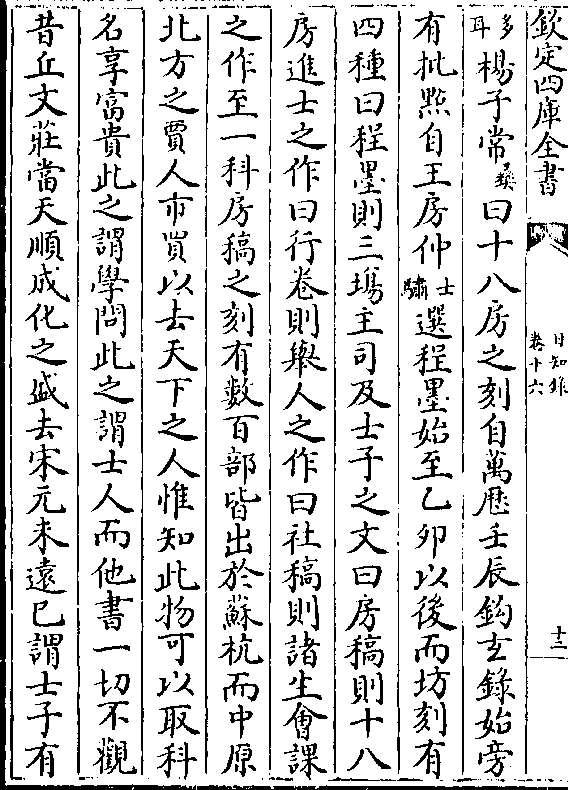 欽定四庫全書
日知錄
卷十六
十二
多耳楊子常彝曰十八房之刻自萬厯壬辰鈎𤣥錄始旁
有批㸃自王房仲士驌選程墨始至乙卯以後而坊刻有
四種曰程墨則三塲主司及士子之文曰房稿則十八
房進士之作曰行卷則舉人之作曰社稿則諸生會課
之作至一科房稿之刻有數百部皆出於蘇杭而中原
北方之賈人市買以去天下之人惟知此物可以取科
名享富貴此之謂學問此之謂士人而他書一切不觀
昔丘文莊當天順成化之盛去宋元未遠已謂士子有